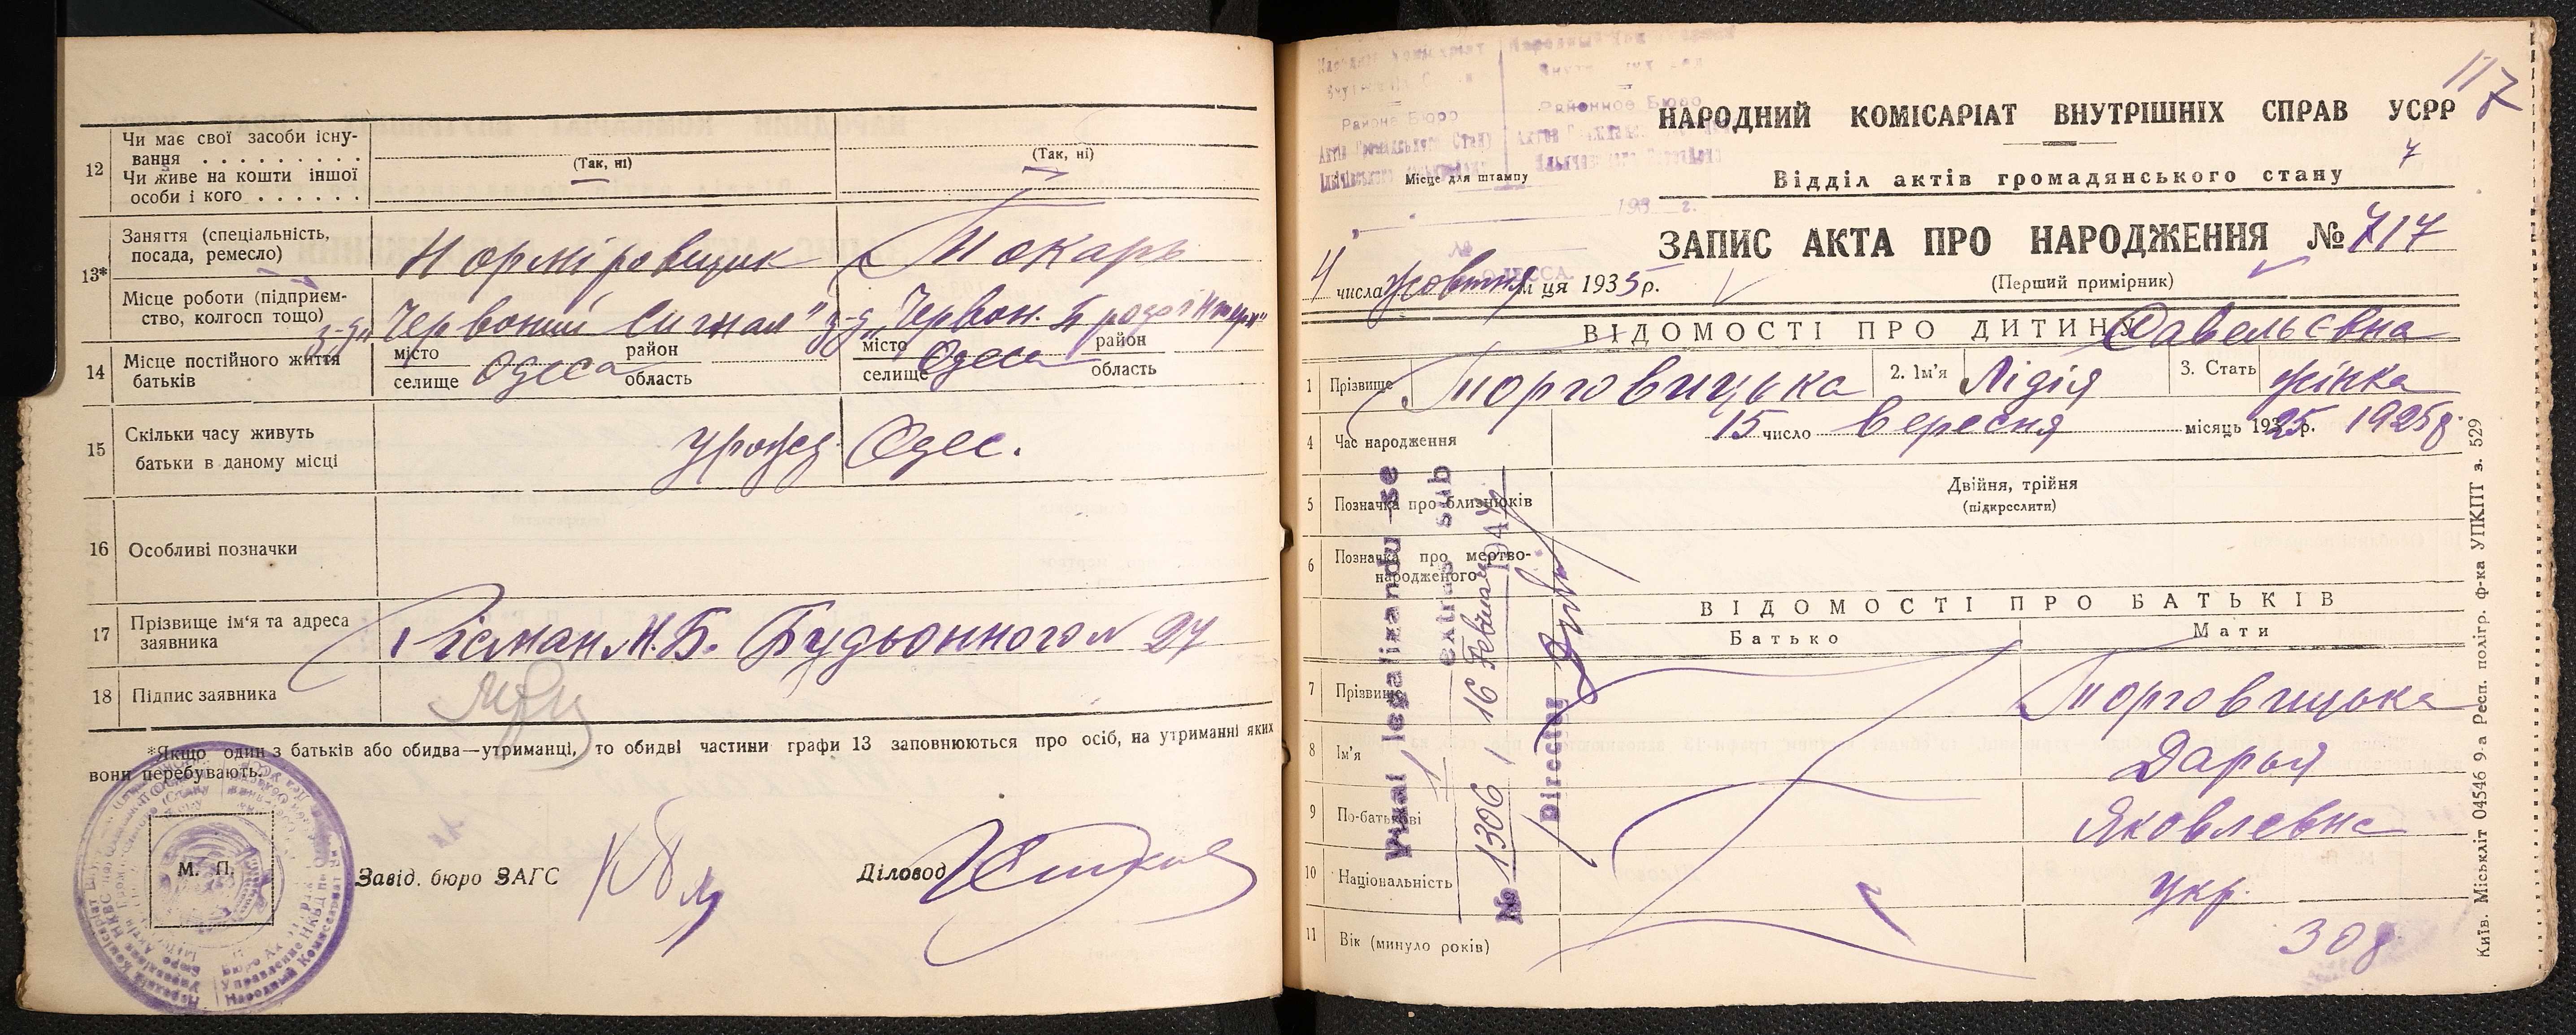 12 Чи має свої засоби існу-
вання . . . . . . . . .
Чи живе на кошти іншої
особи і кого . . . . . .
(Так, ні) (Так, ні)
13* Заняття (спеціальність,
посада, ремесло) Норміровщик Токарь
Місце роботи (підприєм-
ство, колгосп тощо) з-д „Червоний Сигнал" з-д „Червон. Профінтерн"
14 Місце постійного життя
батьків місто селище Одеса район область місто селище Одеса район область
15 Скільки часу живуть
батьки в даному місці урожд. Одес.
16 Особливі позначки
17 Прізвище ім'я та адреса
заявника М.Б. Будьонного № 27
18 Підпис заявника
*Якщо один з батьків або обидва—утриманці, то обидві частини графи 13 заповнюються про осіб, на утриманні яких
вони перебувають.
М. П.
Завід. бюро ЗАГС Діловод
117
7
НАРОДНИЙ КОМІСАРІАТ ВНУТРІШНІХ СПРАВ УСРР
Районне Бюро
Місце для штампу
Відділ актів громадянського стану
193 г.
№
ОДЕССА.
ЗАПИС АКТА ПРО НАРОДЖЕННЯ № 717
4 числа жовтня м ця 1935 р.
(Перший примірник)
ВІДОМОСТІ ПРО ДИТИНУ Савельєвна
1 Прізвище Торговицька 2. Ім'я Лідія 3. Стать жінка
4 Час народження 15 число вересня місяць 1925 р. 1925 р.
5 Позначка про близнюків Двійня, трійня
(підкреслити)
6 Позначка про мертво-
народженого
ВІДОМОСТІ ПРО БАТЬКІВ
Батько Мати
7 Прізвище Торговицька
8 Ім'я Дарья
9 По-батькові Яковлевна
10 Національність укр.
11 Вік (минуло років) 30 р.
legalizandu-se
1 extras sub
№ 1306 / 16 Februar 1944
Director
Київ. Міськліт 04546 9-а Респ. полігр. ф-ка УПКПТ з. 529